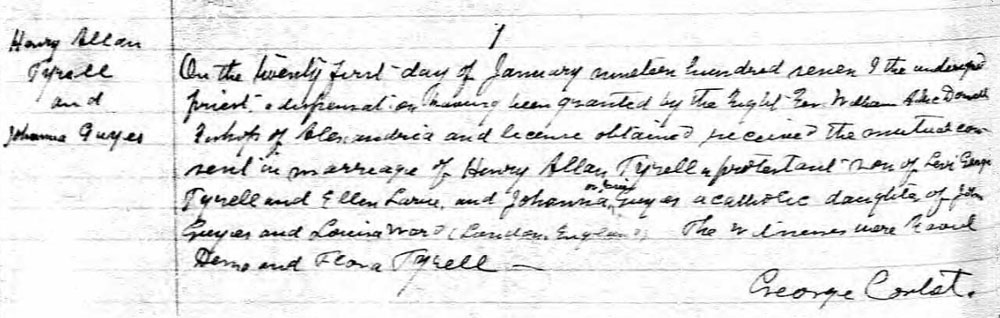 1
Henry Allan
Tyrell
and
Johanna Guyes
On the twenty first day of January nineteen hundred seven I the undersigned
priest dispensation having been granted by the Right Rev. William A.
Bishop of Alexandria and license obtained received the mutual con-
sent in marriage of Henry Allan Tyrell a protestant son of Levi George
Tyrell and Ellen and Johanna Guyes a catholic daughter of John
Guyes and Louisa Ward (London England). The witnesses were
and Flora Tyrell —
George Corbet.